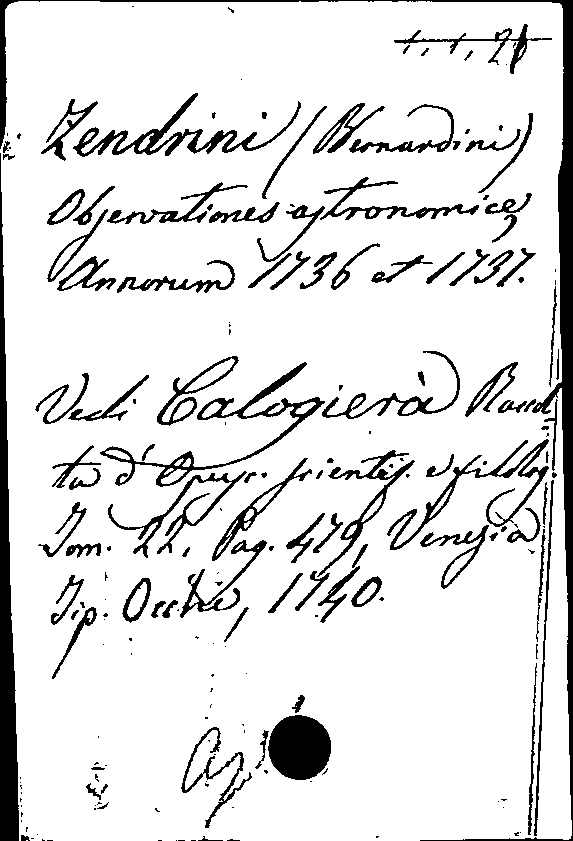 1, 1, 21
Zendrini (Bernardini)
Observationes astronomicę,
Annorum 1736 et 1737.
Vedi Calogierà Raccol-
ta d'Opusc. scientif. e filolog.
Tom. 22. Pag. 479, Venezia
Tip. Occhi, 1740.